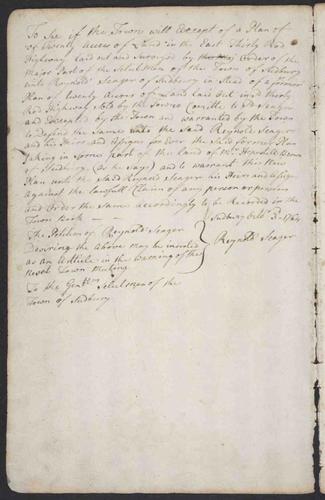 To See if the Town will Except of a Plan of
of twenty acres of Land in the East Thirty Rod
Highway Laid out and Surveyed by Orders of the
Major Part of the Selectmen of the Town of Sudbury
unto Reynold Seager of Sudbury in Stead of a former
Plan of twenty Acres of Land Laid out in ye thirty
Rod Highway Sold by the Town's to Sd Seager
and Excepted by the Town and warranted by the Town
to Defend the Same unto the Said Reynold Seager
and his Heirs and Assigns for Ever the Said former Plan
taking in Some part of the Land of Mr Brown
of Sudbury (As he Says) and to warrant this New
Plan unto the Said Reynold Seager his Heirs and Assigns
against the Lawfull Claim of any person or persons
and Order the Same accordingly to be Recorded in the
Town Book
Sudbury Octr 3
The Petition of Reynold Seager
Desiring the above may be inserted
as an Article in the Warning of the
next Town Meeting
Reynold Seager
To the Gentlmn Selectmen of the
Town of Sudbury